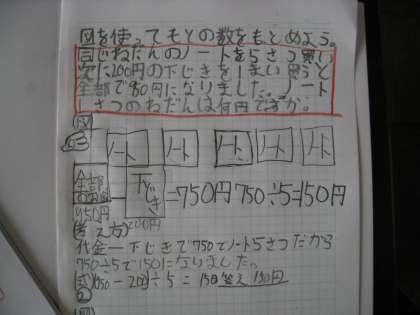 図を使ってもとの数をもとめよう。
同じねだんのノートを5さつ買い
次に200円の下じきを1まい買うと
全部で950円になりました。ノート
1さつのねだんは何円ですか。
図
ノート ノート ノート ノート ノート
全部
950円
下じき
200円
=750円 750÷5=150円
(考え方)
代金ー下じきで750でノート5さつだから
750÷5で150になりました。
式(950-200)÷5=150 答え 150円
図